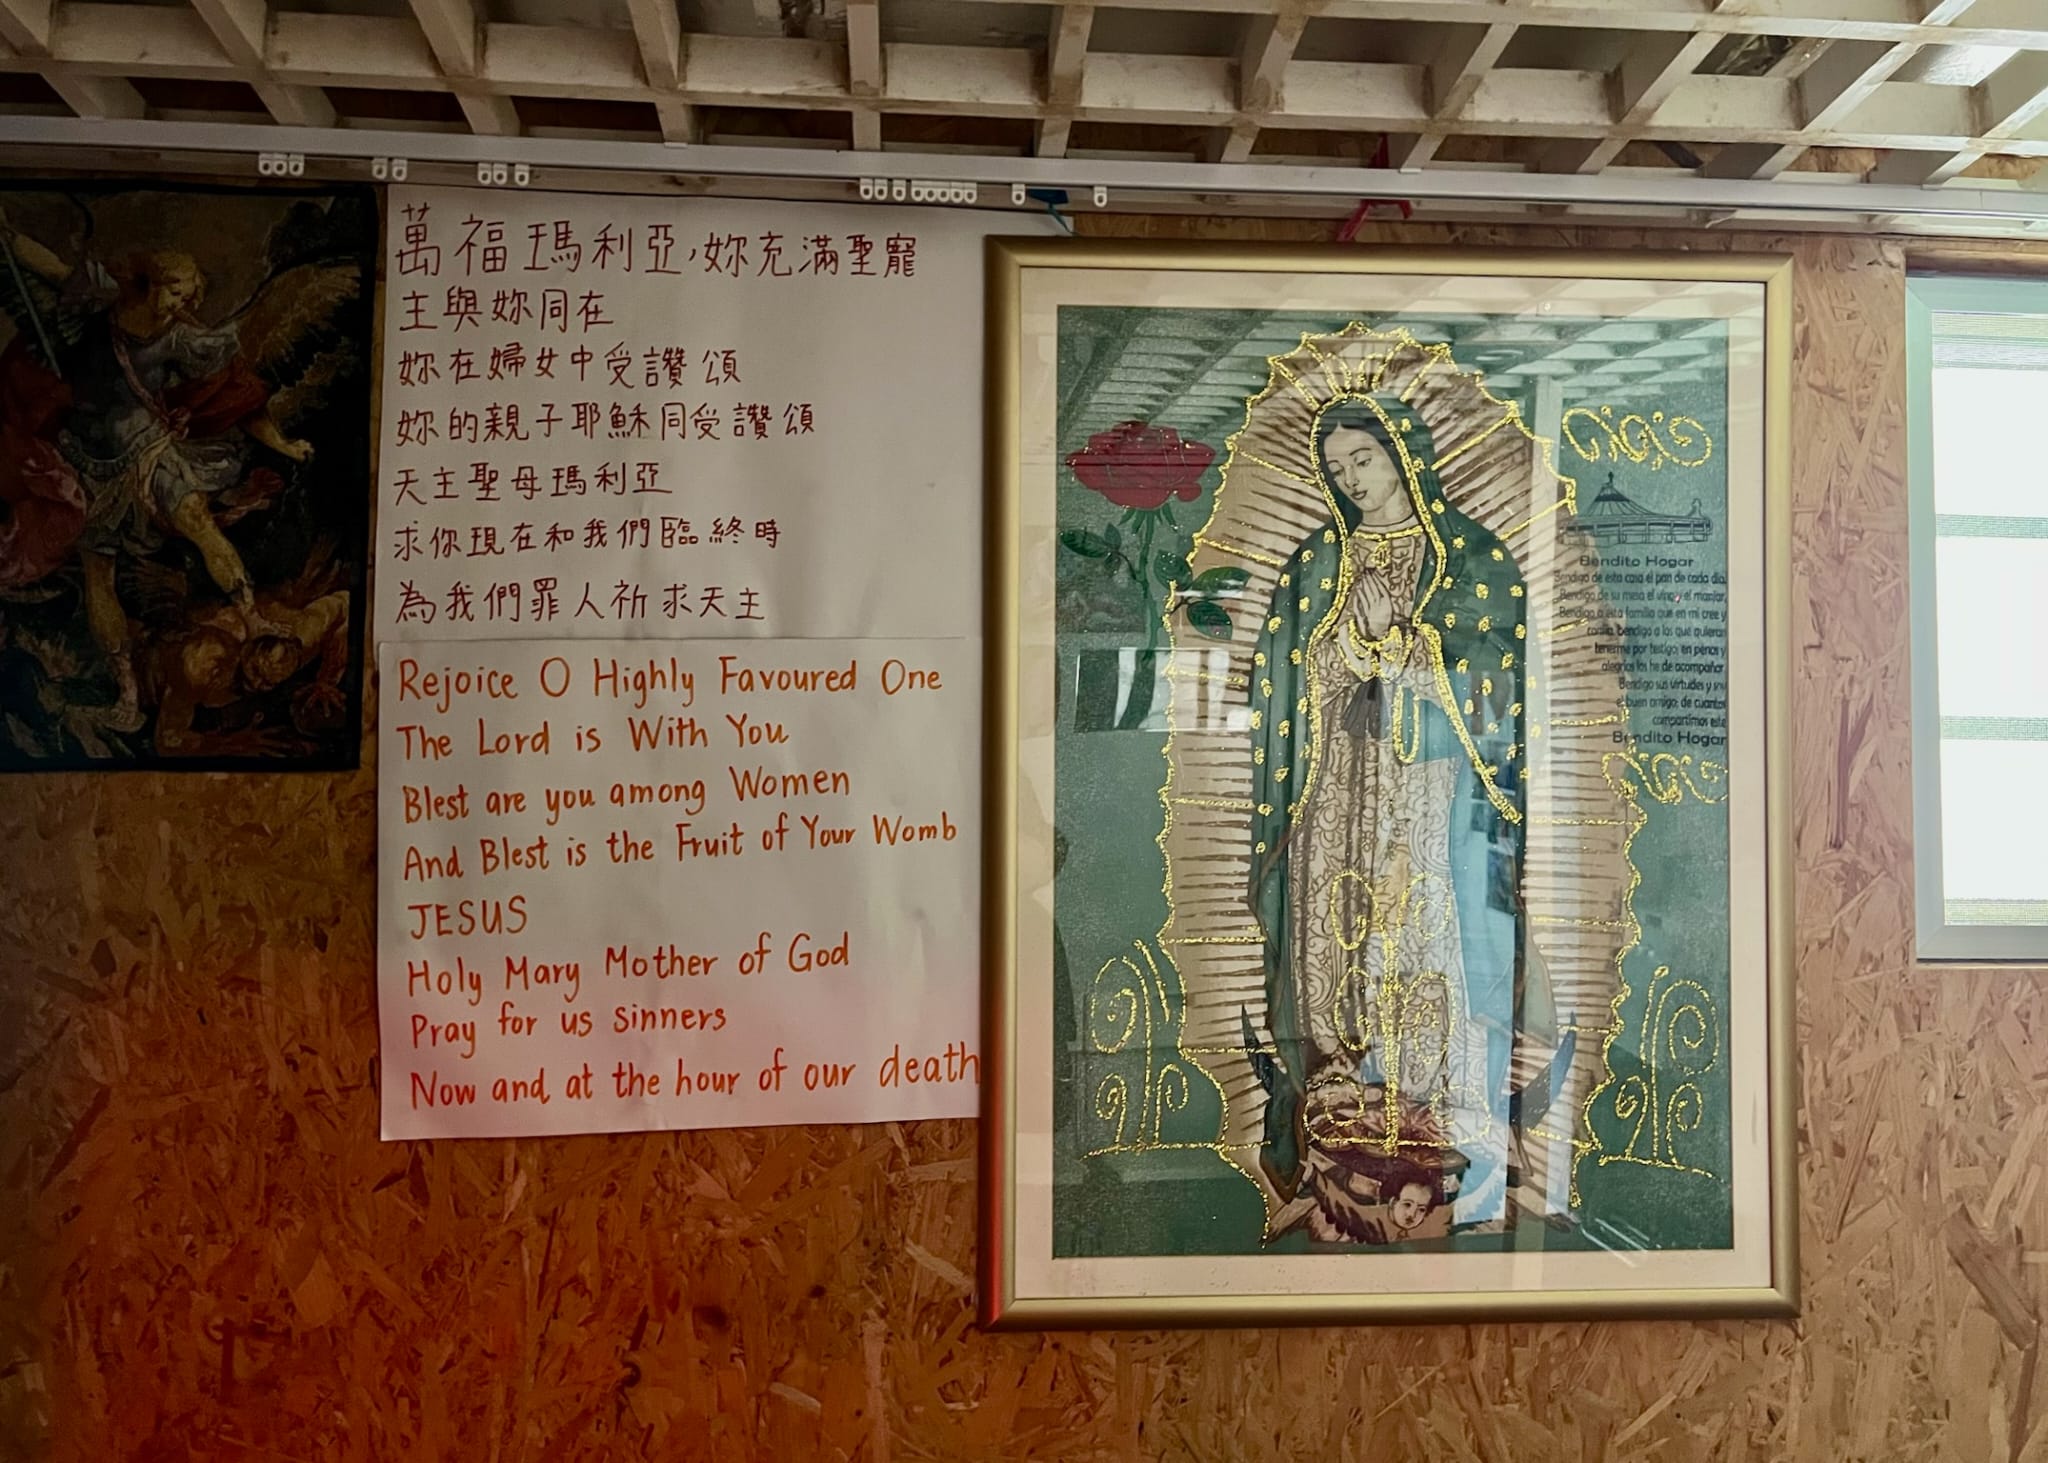 萬福瑪利亞，妳充滿聖寵
主與妳同在
妳在婦女中受讚頌
妳的親子耶穌同受讚頌
天主聖母瑪利亞
求你現在和我們臨終時
為我們罪人祈求天主
Rejoice O Highly Favoured One
The Lord is With You
Blest are you among Women
And Blest is the Fruit of Your Womb
JESUS
Holy Mary Mother of God
Pray for us sinners
Now and at the hour of our death
Bendito Hogar
Bendigo de esta casa el pan de cada dia,
Bendigo de su mesa el vino y el manjar,
Bendigo a esta familia que en mi cree y
confia, bendigo a los que quieran
tenerme por testigo; en penas y
alegrias los he de acompañar.
Bendigo sus virtudes y su
el buen amigo; de cuantos
compartimos este
Bendito Hogar